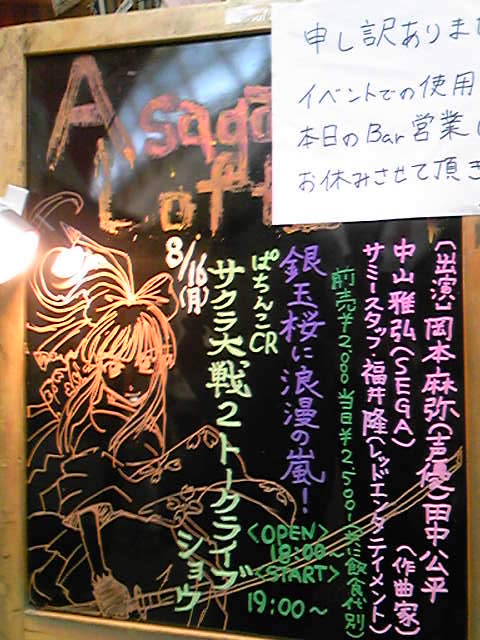 Asaga
Loft
申し訳ありま
イベントでの使用
本日のBar営業
お休みさせて頂き
8/16(月)
ぱちんこCR
サクラ大戦2トークライブ
ショウ
銀玉桜に浪漫の嵐!
前売¥2,000 当日¥2,500!(共に飲食代別)
<OPEN>
18:00~
<START>
19:00~
(出演)岡本麻弥(声優)田中公平
(作曲家)
中山雅弘(SEGA)
サミースタッフ 福井隆(レッドエンタテイメント)